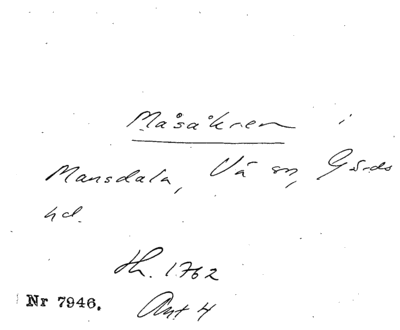 Måsåkren i
Mansdala, Vä sn, Gärds
hd.
Hh. 1762
Nr 7946. Akt 4